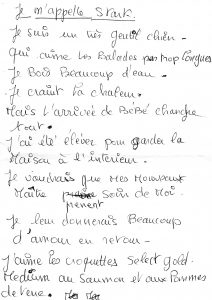 Je m'appelle Stark.
Je suis un très gentil chien -
qui aime les Balades pas trop longues
Je Bois Beaucoup d'eau -
Je craint la chaleur.
Mais l'arrivée de BéBé change
tout.
J'ai été élever pour garder la
Maison à l'interieur -
Je voudrais que Mes Nouveaux
Maître prenent Soin de Moi.
Je leur donnerais Beaucoup
d'amour en retour -
J'aime les croquettes Select gold.
Medium au Saumon et aux Pommes
de terre.